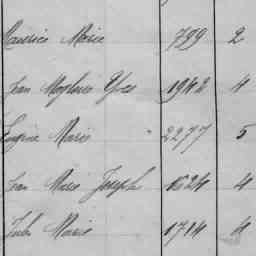 Maurice Marie 799 2
Jean Marie Yves 1942 4
Eugène Marie 2277 5
Jean Marie Joseph 1624 4
Jules Marie 1714 4